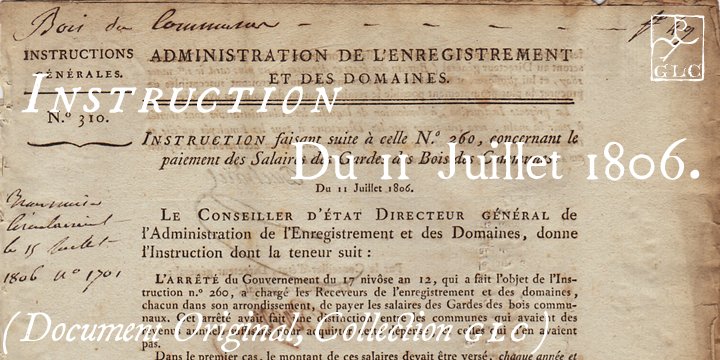 Bois des Communes - - - - - fº 49
INSTRUCTIONS
GÉNÉRALES.
N.º 310.
ADMINISTRATION DE L'ENREGISTREMENT
ET DES DOMAINES.
GLC
INSTRUCTION
INSTRUCTION faisant suite à celle N.º 260, concernant le
paiement des Salaires des Gardes des Bois des Communes.
Du 11 Juillet 1806.
Du 11 Juillet 1806.
LE CONSEILLER D'ÉTAT DIRECTEUR GÉNÉRAL de
l'Administration de l'Enregistrement et des Domaines, donne
l'Instruction dont la teneur suit :
le 15 Juillet
1806 nº 1701
L'ARRÊTÉ du Gouvernement du 17 nivôse an 12, qui a fait l'objet de l'Ins-
truction n.º 260, a chargé les Receveurs de l'enregistrement et des domaines,
chacun dans son arrondissement, de payer les salaires des Gardes des bois commu-
naux. Cet arrêté avait fait une distinction entre les communes qui avaient des
revenus annuels affectés pour acquitter cette dépense, et celles qui n'en avaient
pas.
Dans le premier cas, le montant de ces salaires devait être versé, chaque année et
( Document Original, Collection GLC )